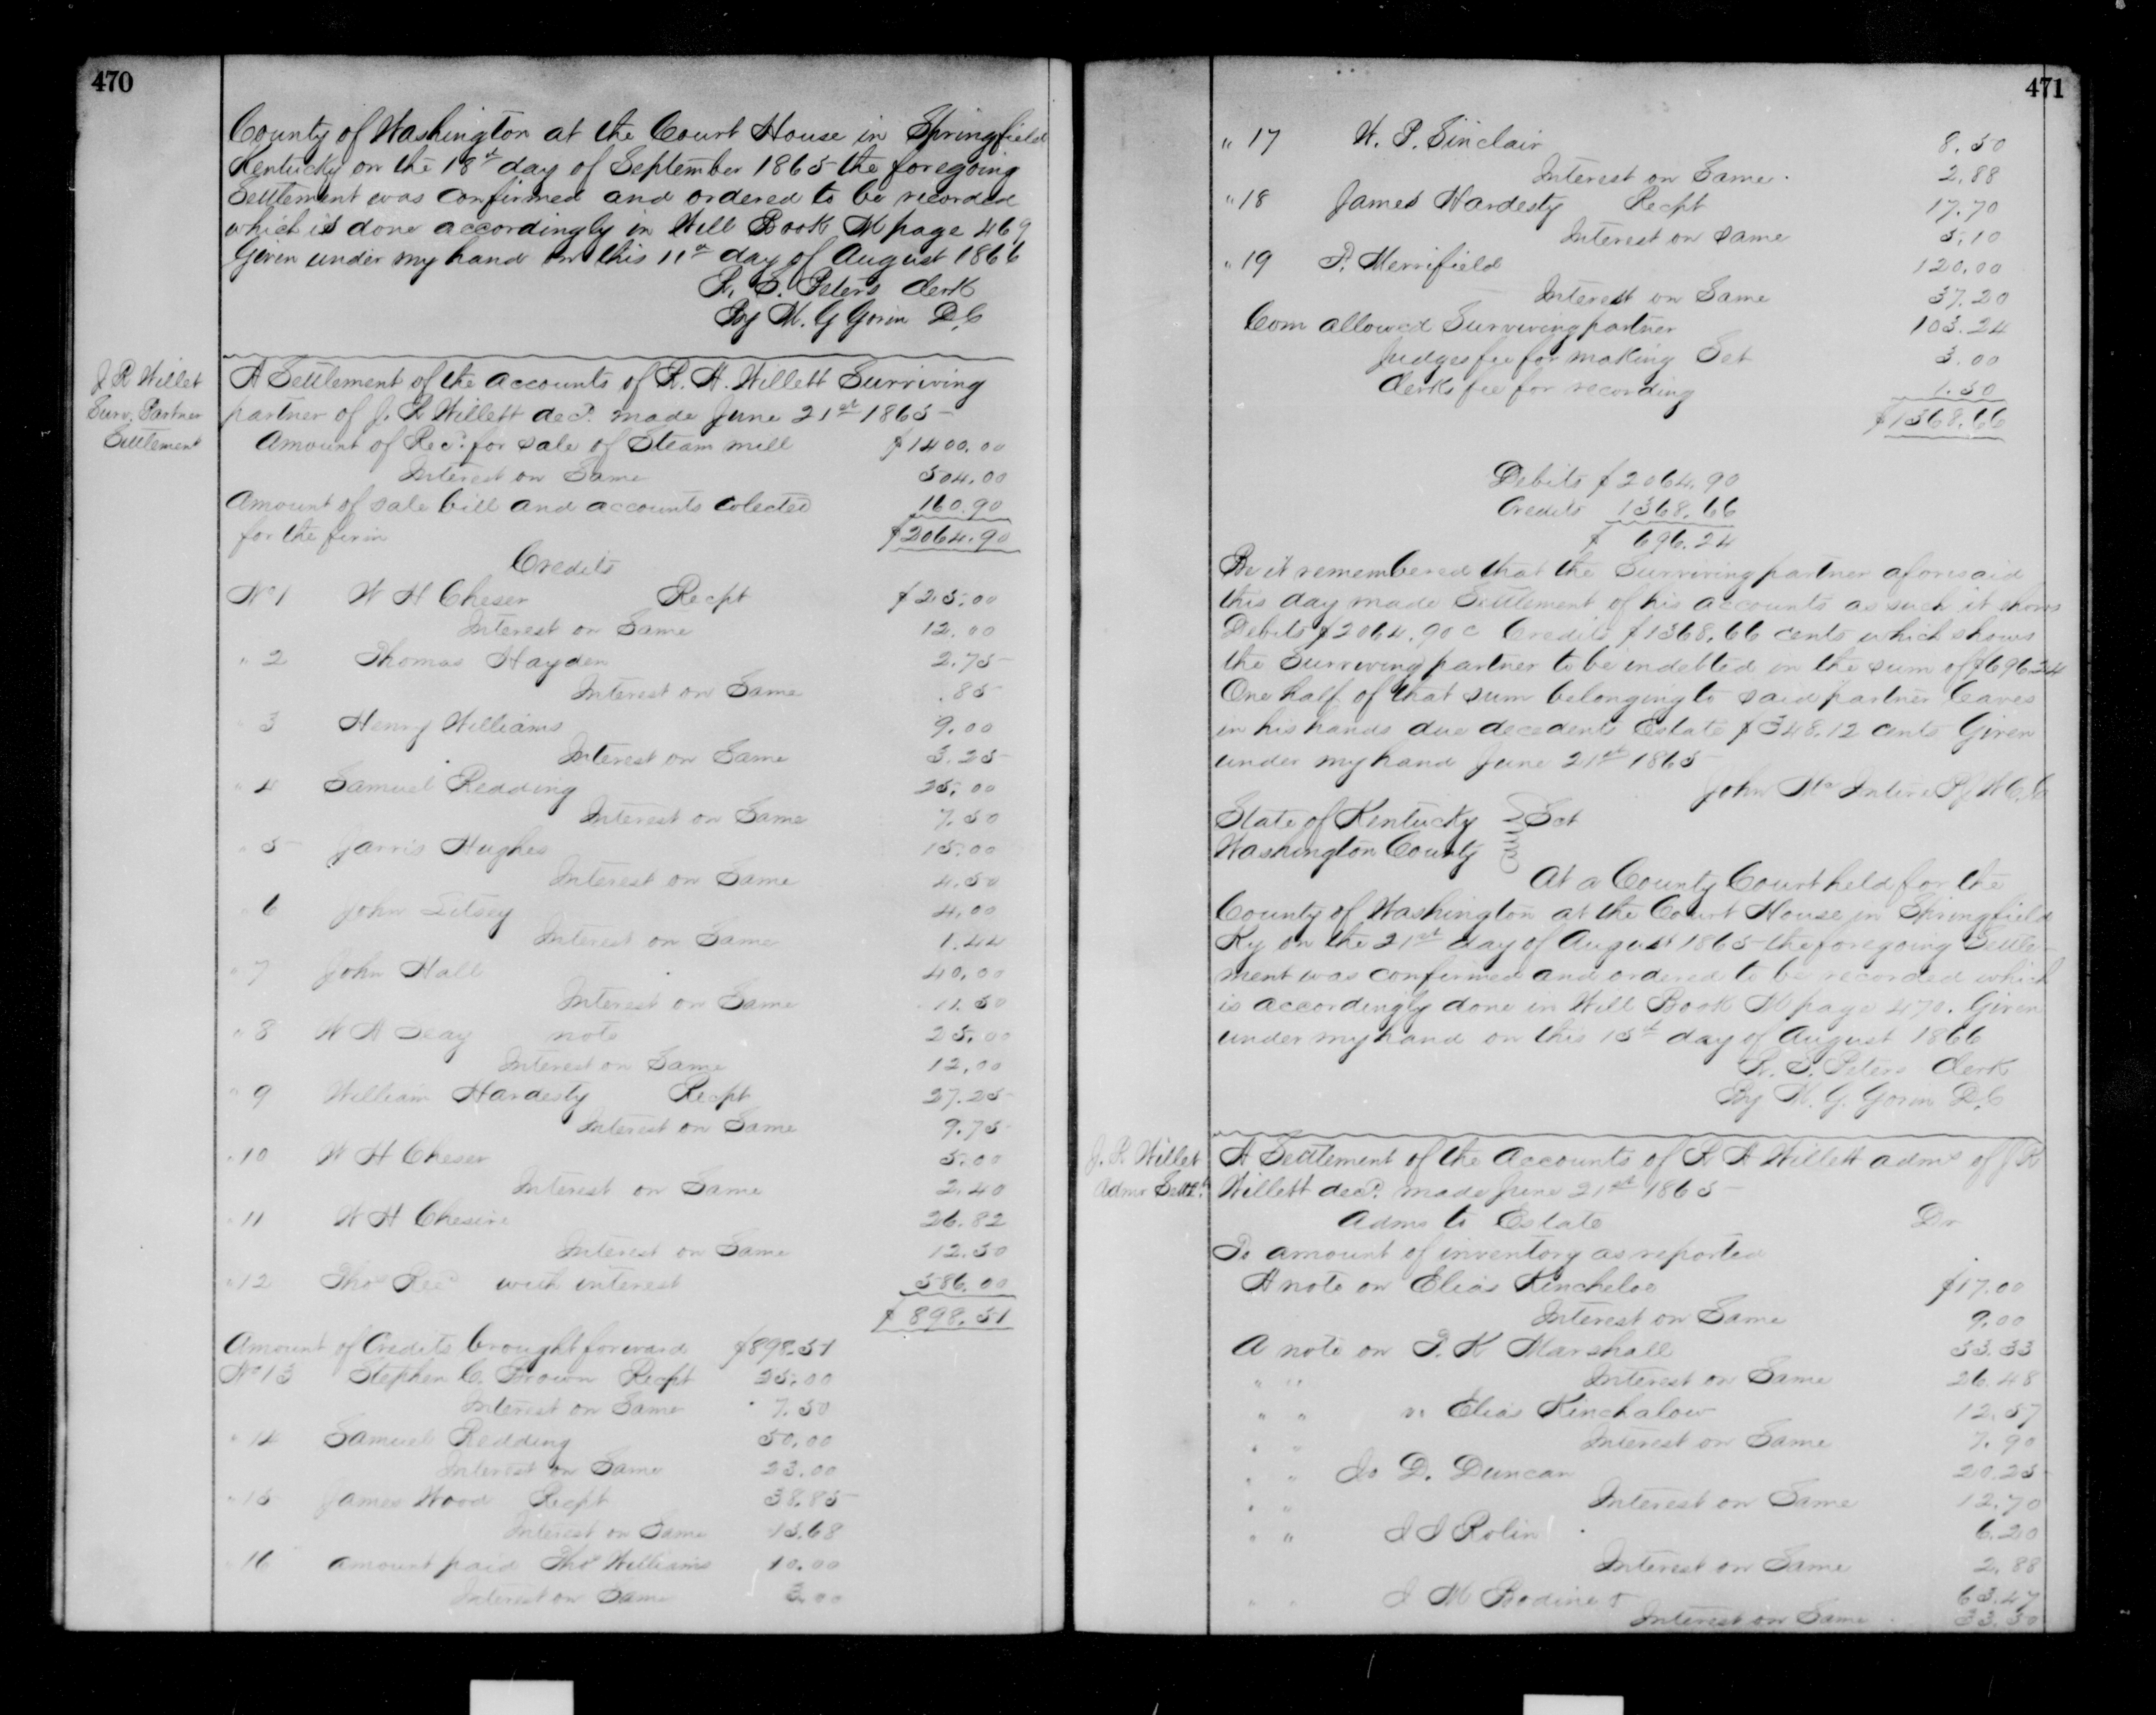 470
County of Washington at the Court House in Springfield
Kentucky on the 18st day of September 1865 the foregoing
Settlement was confirmed and ordered to be recorded
which is done accordingly in Will Book M page 469
Given under my hand on this 11th day of August 1866
By M. G Gorin D.C
J R Willet
Surv. Partner
Settlement
A Settlement of the accounts of R. H. Willett Surviving
partner of J. R Willett decd. made June 21st 1865
Amount of Recd. for sale of Steam mill $1400.00
Interest on Same 504.00
Amount of sale bill and accounts colected 160.90
for the firm $2064.90
Credits
No 1 W H Cheser Recpt $25.00
Interest on Same 12.00
" 2 Thomas Hayden 2.75
Interest on Same .85
" 3 Henry Williams 9.00
Interest on Same 3.25
" 4 Samuel Redding 25.00
Interest on Same 7.50
" 5 Jarris Hughes 15.00
Interest on Same 4.50
" 6 John Litsey 4.00
Interest on Same 1.44
" 7 John Hall 40.00
Interest on Same 11.50
" 8 W A Seay note 25.00
Interest on Same 12.00
" 9 William Hardesty Recpt 27.25
Interest on Same 9.75
" 10 W H Cheser 5.00
Interest on Same 2.40
" 11 W H Chesire 26.82
Interest on Same 12.50
" 12 Thos with interest 586.00
$898.51
Amount of Credits brought forward $898.51
No 13 Stephen C. Brown Recpt 25.00
Interest on Same 7.50
" 14 Samuel Redding 50.00
Interest on Same 23.00
" 15 James Wood Recpt 38.85
Interest on Same 15.68
" 16 amount paid Thos Williams 10.00
Interest on Same 3.00
471
" 17 W. P. Sinclair 8.50
Interest on Same 2.88
" 18 James Hardesty Recpt 17.70
Interest on same 5.10
" 19 P. Merrifield 120.00
Interest on Same 37.20
Com allowed Surviving partner 103.24
Judges fee for making Set 3.00
Clerks fee for recording 1.50
$1368.66
Debits $2064.90
Credits 1368.66
$ 696.24
Be it remembered that the Surviving partner aforesaid
this day made Settlement of his accounts as such it shows
Debits $2064.90 c Credits $1368.66 cents which shows
the Surviving partner to be indebted in the sum of $696.24
One half of that sum belonging to said partner leaves
in his hands due decedents Estate $348.12 cents Given
under my hand June 21st 1865
John McIntire P J W C C
State of Kentucky } Sct
Washington County
At a County Court held for the
County of Washington at the Court House in Springfield
Ky on the 21st day of August 1865 the foregoing Settle-
ment was confirmed and ordered to be recorded which
is accordingly done in Will Book M page 470. Given
under my hand on this 15th day of August 1866
Peters Clerk
By M. G. Gorin D.C
J. R. Willet
Admr Settt.
A Settlement of the Accounts of R H Willett admr of J R
Willett decd. made June 21st 1865
Admr to Estate Dr
To amount of inventory as reported
A note on Elias Kincheloe $17.00
Interest on Same 9.00
A note on P. K Marshall 53.33
" " Interest on Same 26.48
" " " Elias Kinchalow 12.57
" " Interest on Same 7.90
" " D. Duncan 20.25
" " Interest on Same 12.70
" " Rolin 6.20
Interest on Same 2.88
" " M Bodine 63.47
Interest on Same 33.50